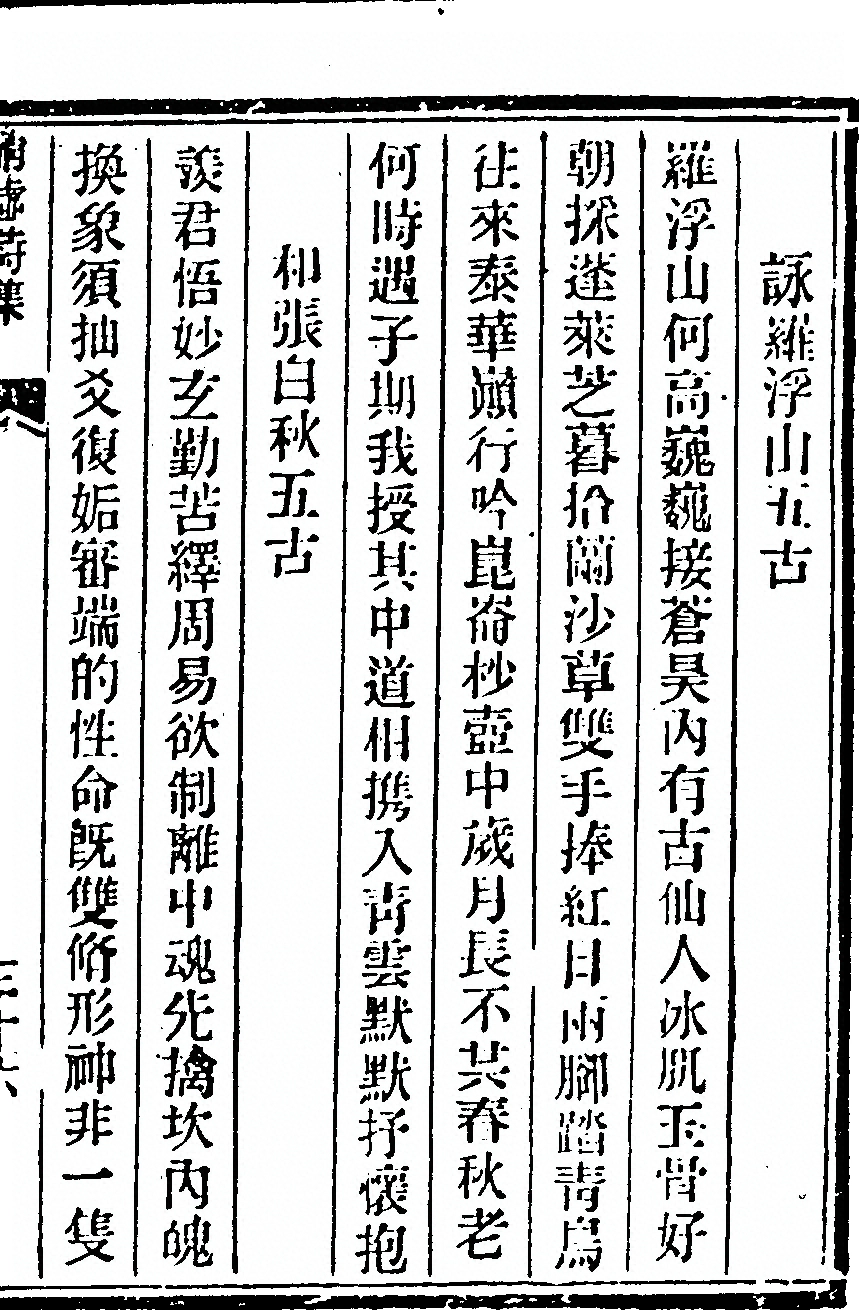 詠羅浮山五古
羅浮山何高巍巍接蒼昊內有古仙人冰肌玉骨好
朝採蓬萊芝暮拾蘭沙草雙手捧紅日兩腳踏青鳥
往來泰華巔行吟崑崙杪壺中歲月長不共春秋老
何時遇子期我授其中道相攜入青雲默默抒懷抱
和張白秋五古
羨君悟妙玄勤苦繹周易欲制離中魂先擒坎內魄
換象須抽爻復姤審端的性命既雙脩形神非一隻
虛詩集
三十六